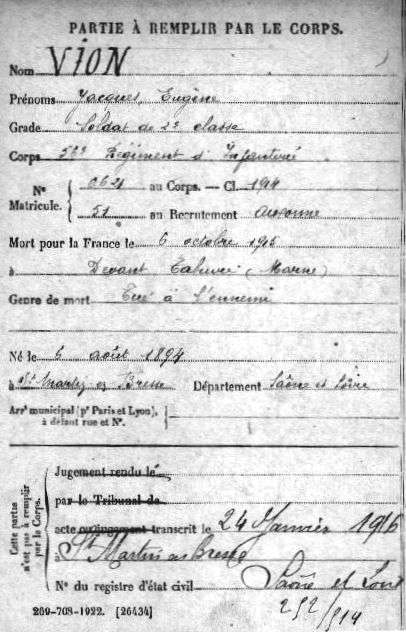 PARTIE À REMPLIR PAR LE CORPS.
Nom VION
Prénoms Jacques, Eugène
Grade Soldat de 2e classe
Corps 56e Régiment d'Infanterie
No Matricule. 0621 au Corps. — Cl. 1914
51 au Recrutement Auxonne
Mort pour la France le 6 octobre 1915
à Devant Tahure (Marne)
Genre de mort Tué à l'ennemi
Né le 6 août 1894
à St Martin en Bresse Département Saône et Loire
Arrt municipal (pr Paris et Lyon),
à défaut rue et No.
Cette partie n'est pas à remplir par le Corps.
Jugement rendu le
par le Tribunal de
acte ou jugement transcrit le 24 Janvier 1916
à St Martin en Bresse
No du registre d'état civil Saône et Loire
292/914
269-708-1922. [26434]